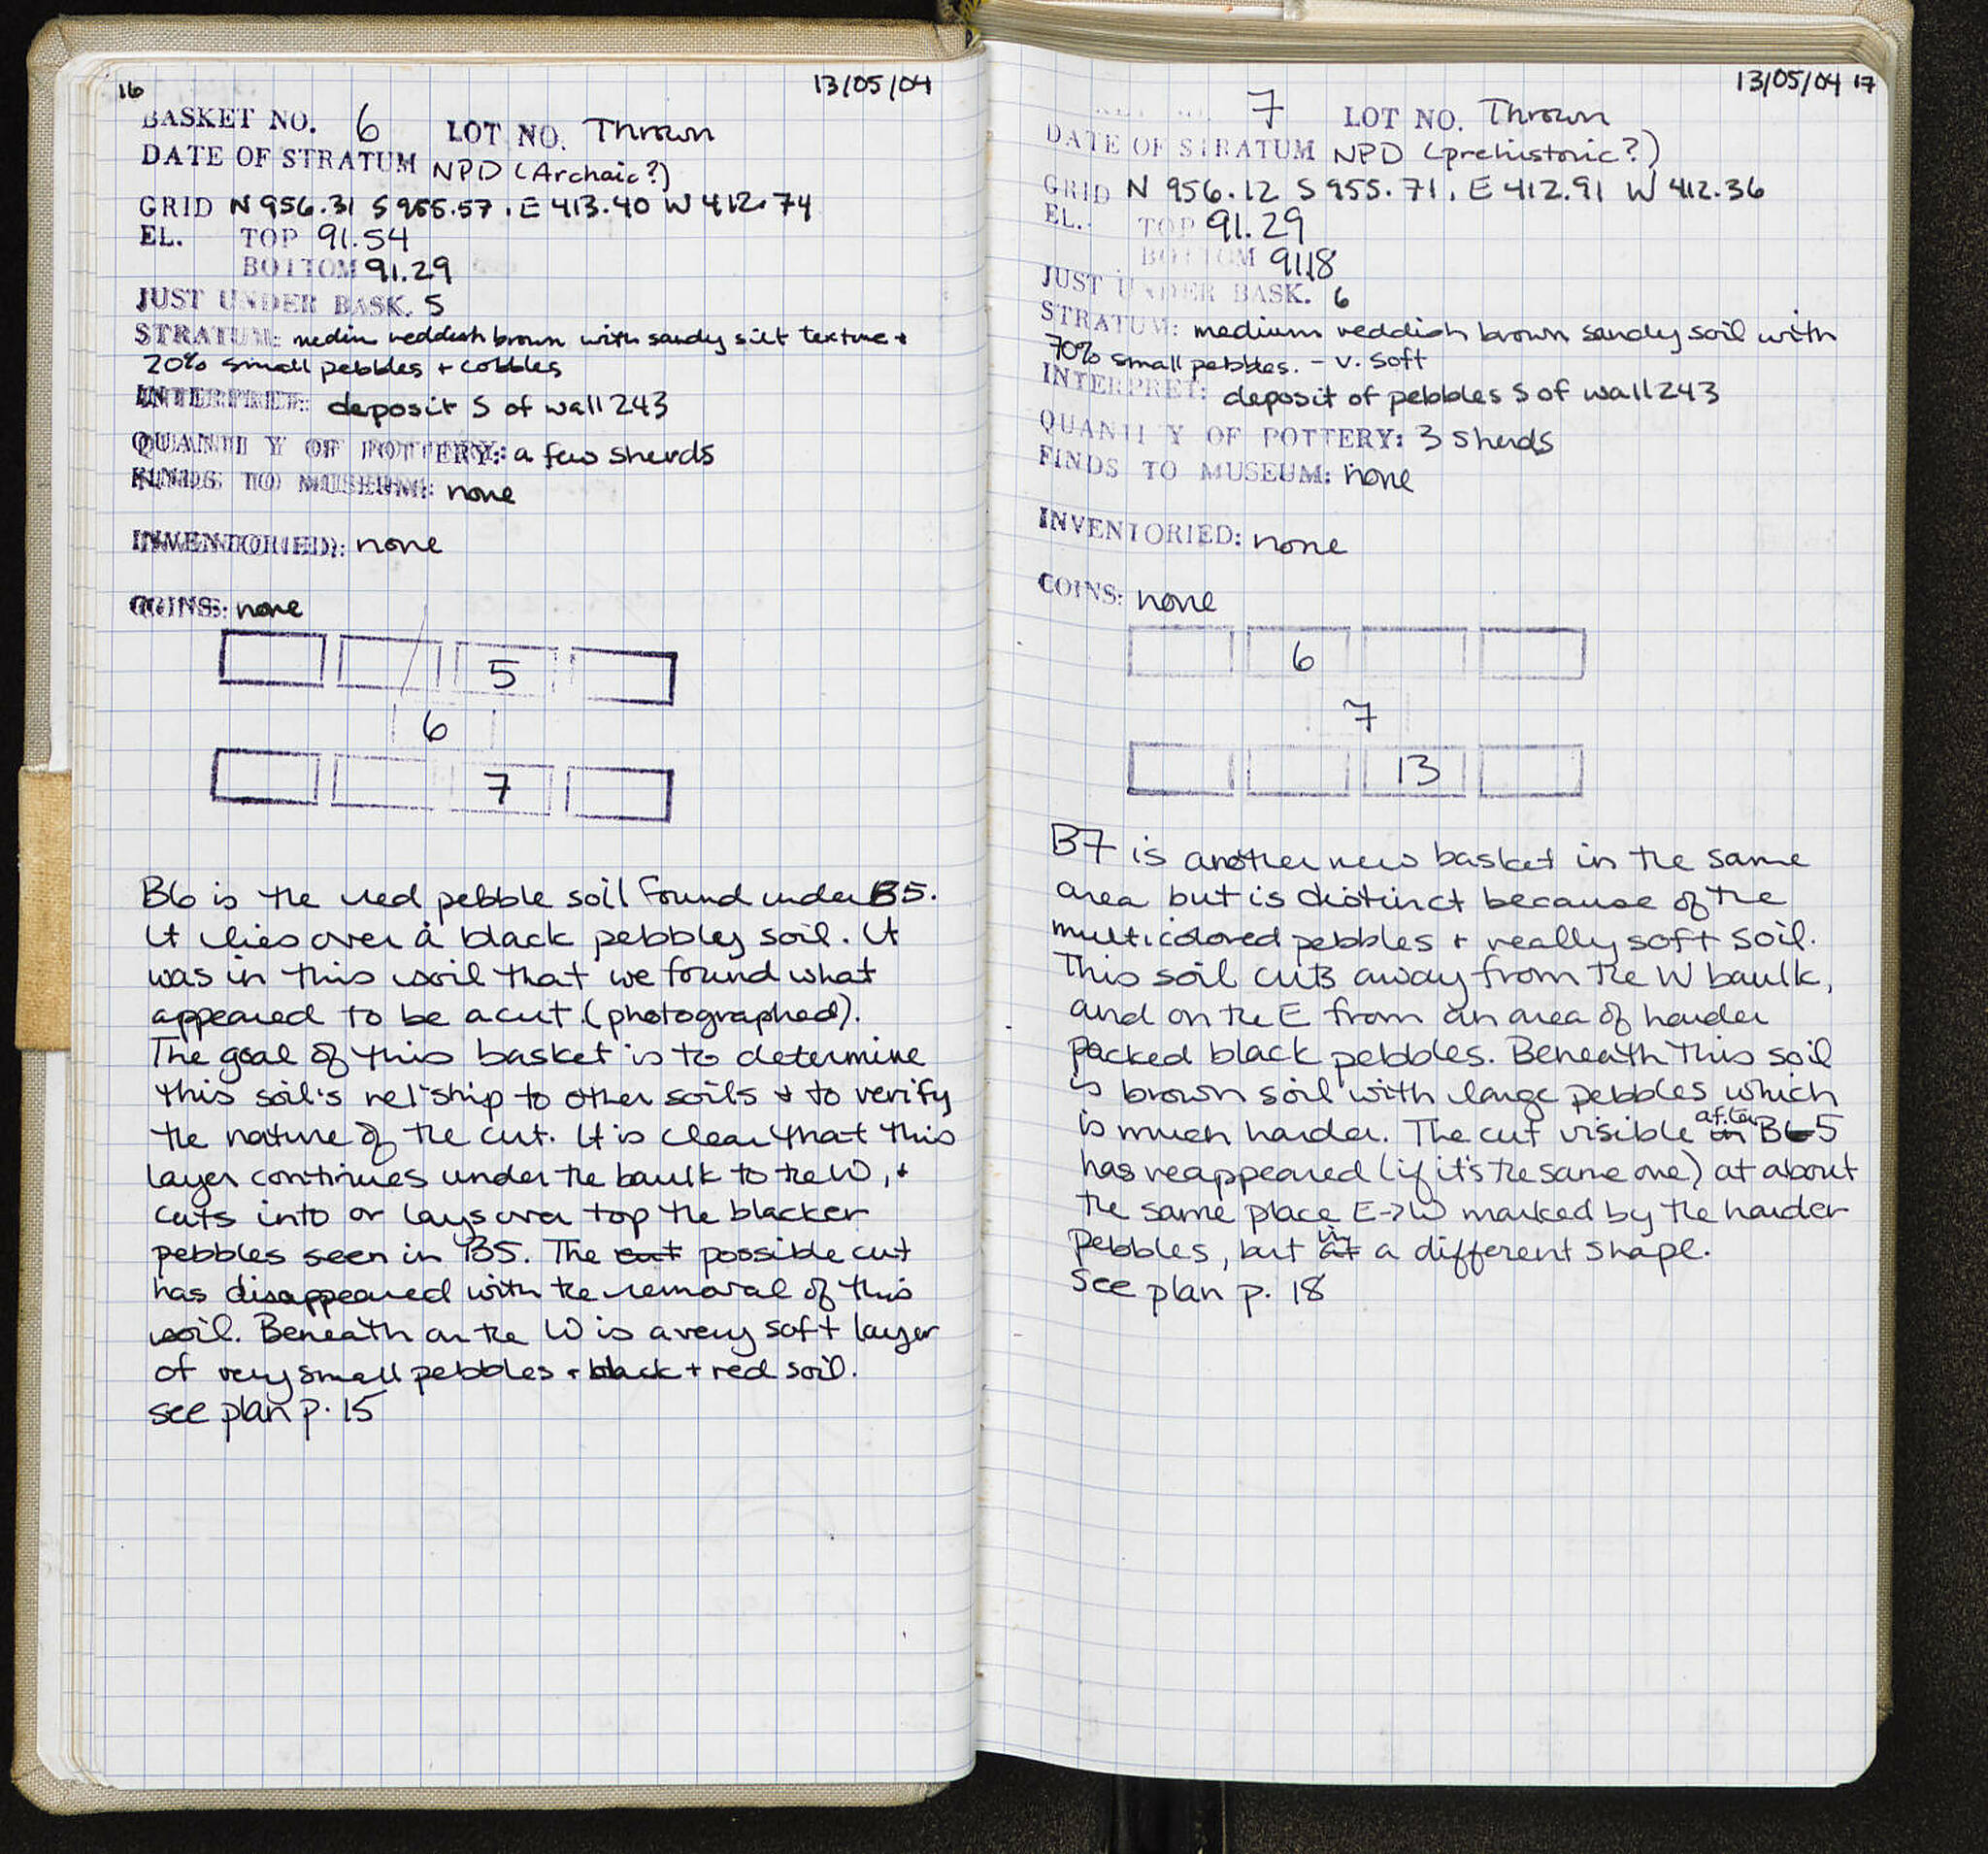 16
13/05/04
BASKET NO. 6 LOT NO. Thrown
DATE OF STRATUM NPD (Archaic?)
GRID N 956.31 S 955.57, E 413.40 W 412.74
EL. TOP 91.54
BOTTOM 91.29
JUST UNDER BASK. 5
STRATUM: medium reddish brown with sandy silt texture +
20% small pebbles + cobbles
INTERPRET: deposit S of wall 243
QUANTI Y OF POTTERY: a few sherds
FINDS TO MUSEUM: none
INVENTORIED: none
COINS: none
5
6
7
B6 is the red pebble soil found under B5.
It lies over a black pebbley soil. It
was in this soil that we found what
appeared to be a cut (photographed).
The goal of this basket is to determine
this soil's rel'ship to other soils + to verify
the nature of the cut. It is clear that this
layer continues under the baulk to the W, +
cuts into or lays over top the blacker
pebbles seen in B5. The cut possible cut
has disappeared with the removal of this
soil. Beneath on the W is a very soft layer
of very small pebbles + black + red soil.
see plan p. 15
13/05/04 17
7 LOT NO. Thrown
DATE OF STRATUM NPD (prehistoric?)
GRID N 956.12 S 955.71, E 412.91 W 412.36
EL. TOP 91.29
BOTTOM 91.18
JUST UNDER BASK. 6
STRATUM: medium reddish brown sandy soil with
70% small pebbles. - v. soft
INTERPRET: deposit of pebbles S of wall 243
QUANTI Y OF POTTERY: 3 sherds
FINDS TO MUSEUM: none
INVENTORIED: none
COINS: none
6
7
13
B7 is another new basket in the same
area but is distinct because of the
multicolored pebbles + really soft soil.
This soil cuts away from the W baulk,
and on the E from an area of harder
packed black pebbles. Beneath this soil
is brown soil with large pebbles which
is much harder. The cut visible in after B6 5
has reappeared (if it's the same one) at about
the same place E->W marked by the harder
pebbles, but at in a different shape.
see plan p. 18